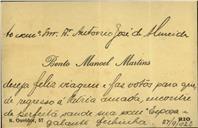 ao Exmo Snr. Dr. Antonio José de Almeida
Bento Manoel Martins
deseja feliz viagem e faz votos para que
de regresso á Patria amada, encontre
de perfeita saude sua Exma Esposa
galante filhinha.
R. Ouvidor, 57
RIO